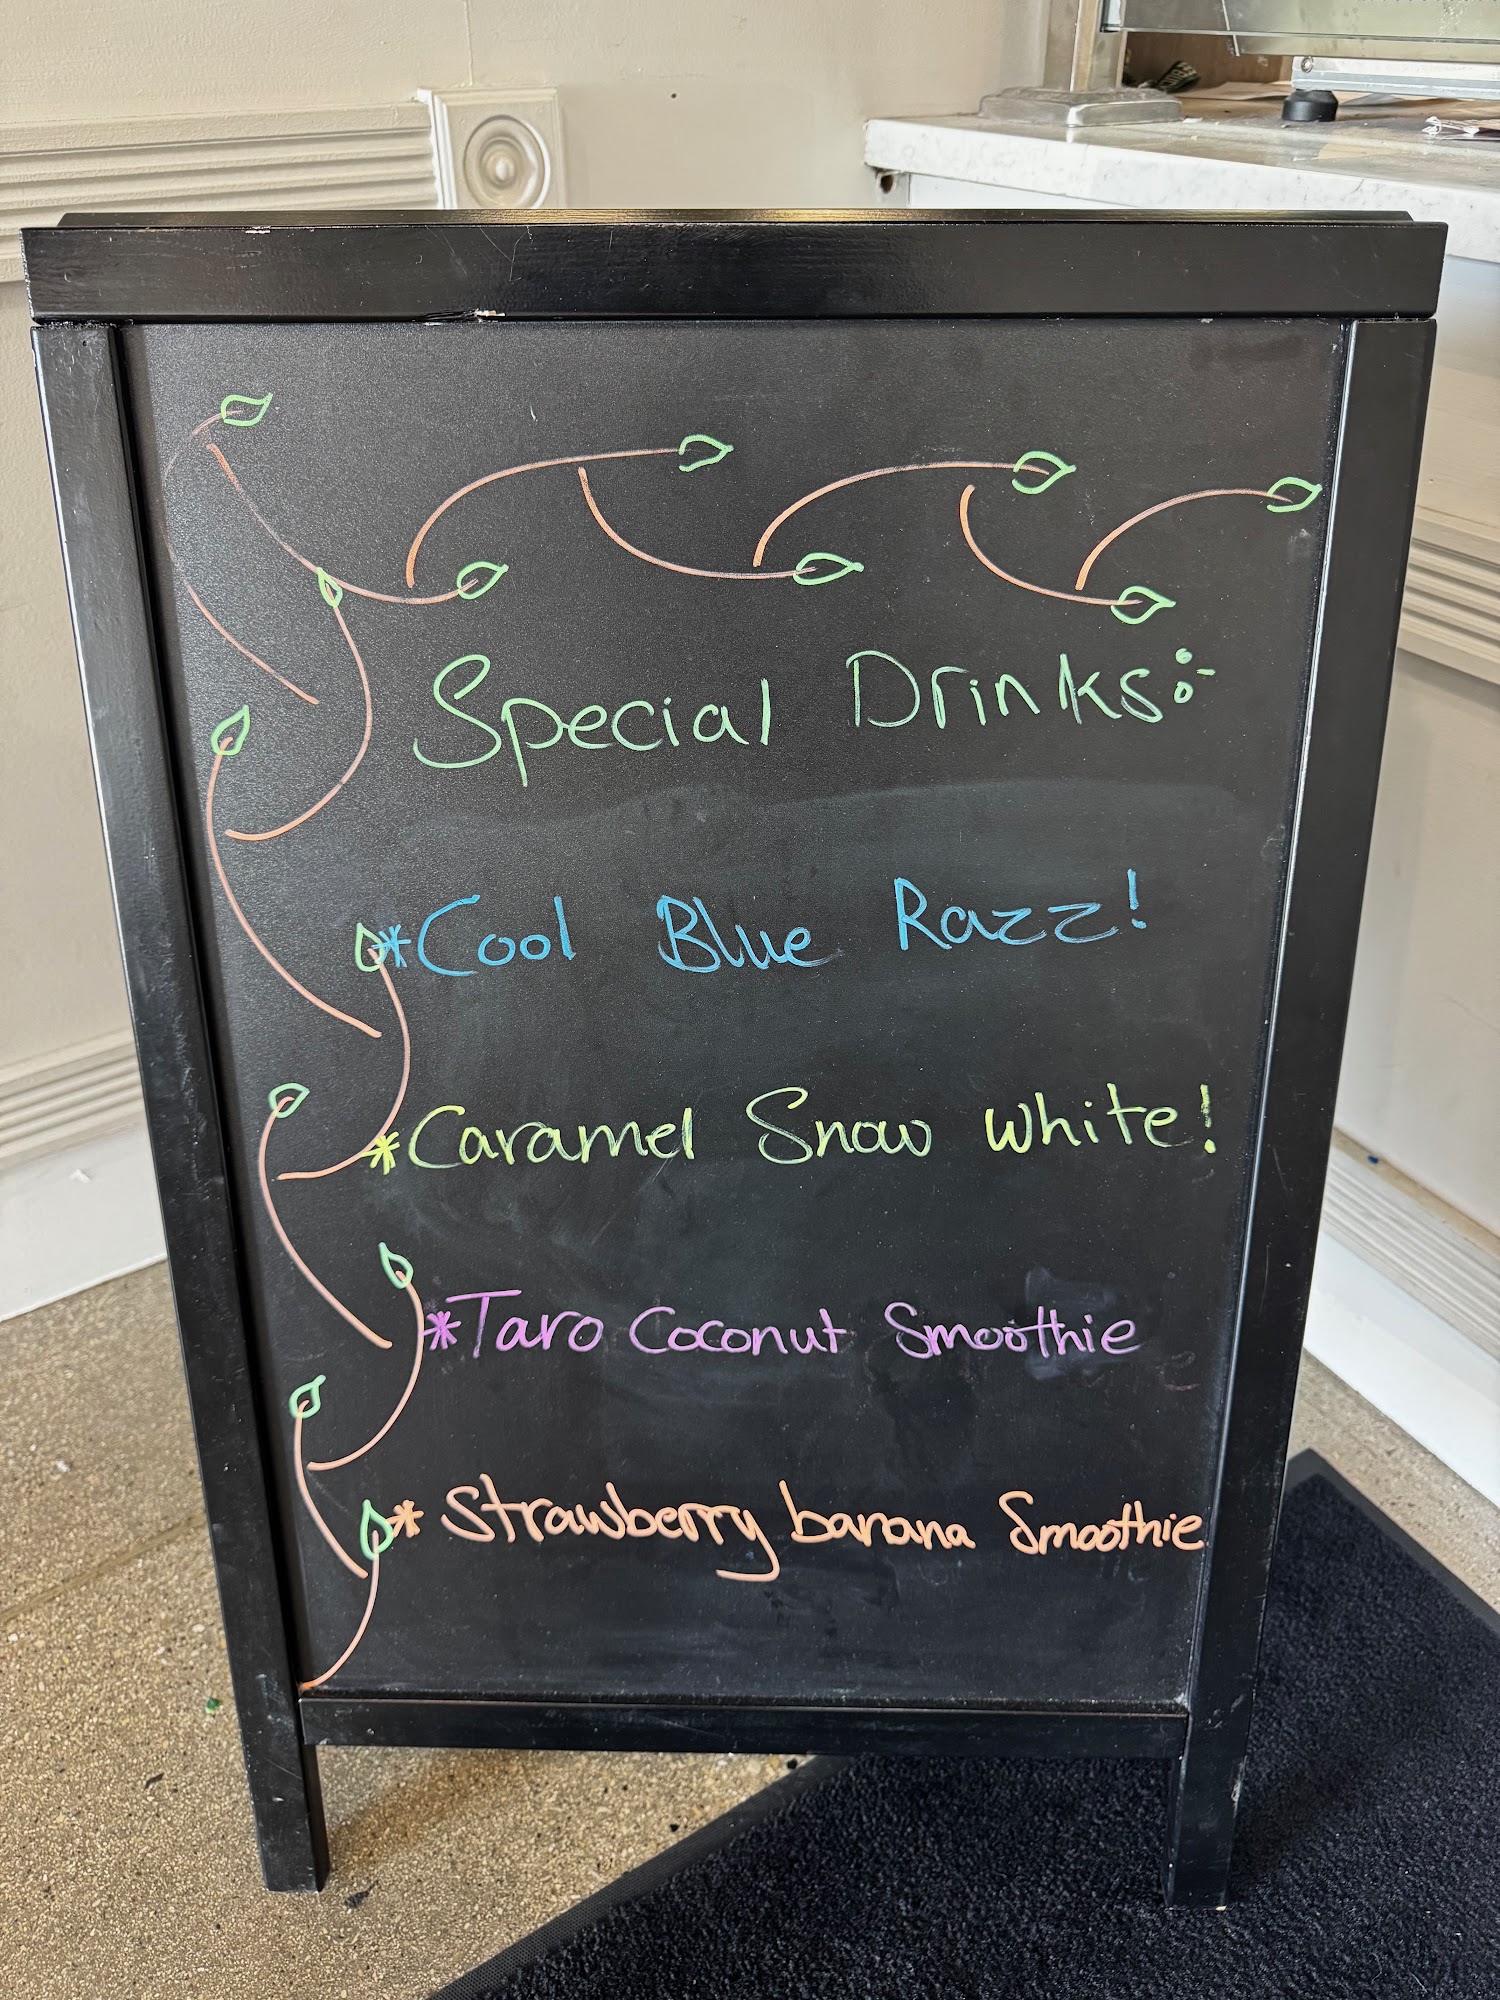 Special Drinks:
*Cool Blue Razz!
*Caramel Snow White!
*Taro Coconut Smoothie
* Strawberry banana Smoothie